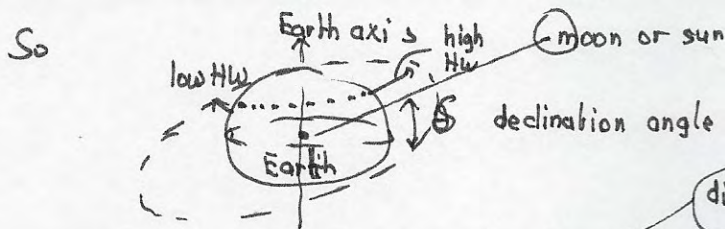 So
Earth axis
high HW
moon or sun
low HW
δ declination angle
Earth
di